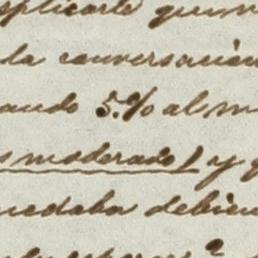 splicarle
la conversación
ando 5.% al m
s moderado) y q
uedaba debien